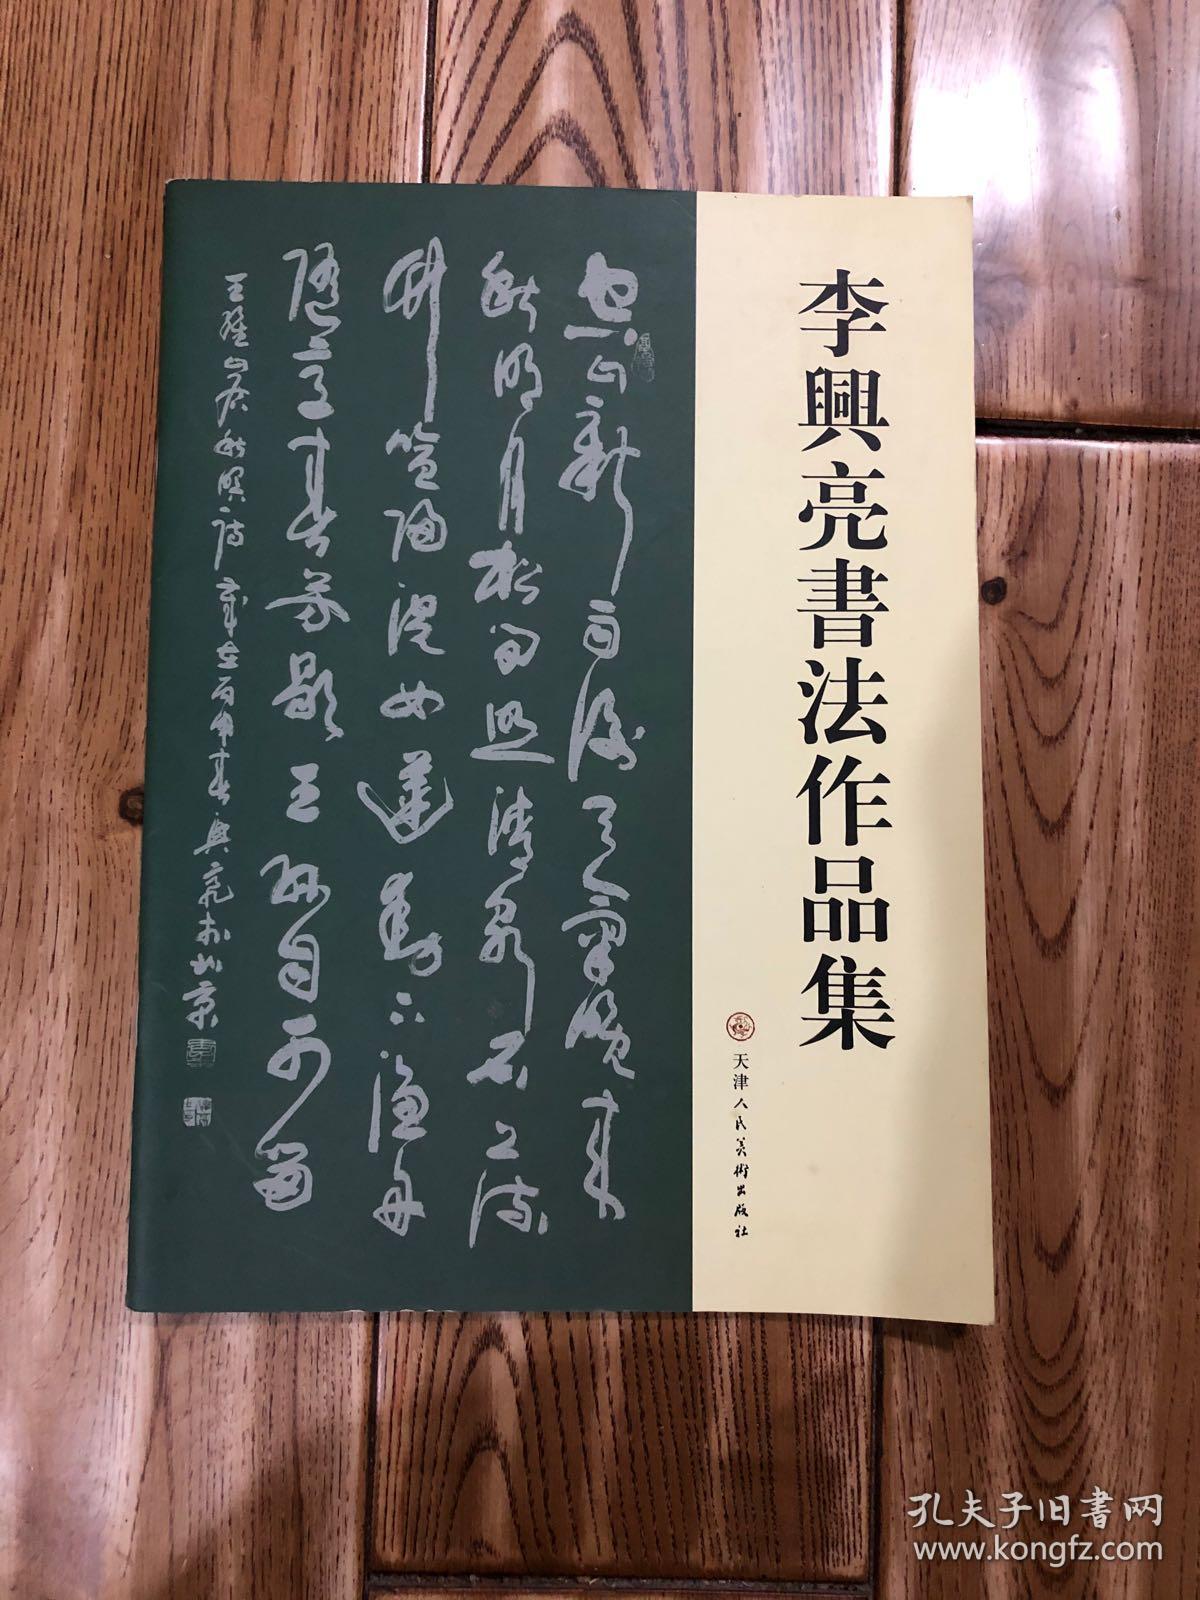 李興亮書法作品集
天津人民美術出版社
空山新雨後天氣晚來
秋明月松間照清泉石上流
竹喧歸浣女蓮動下漁舟
隨意春芳歇王孫自可留
王維山居秋暝詩歲在丙申春興亮於北京
孔夫子旧書网
www.kongfz.com